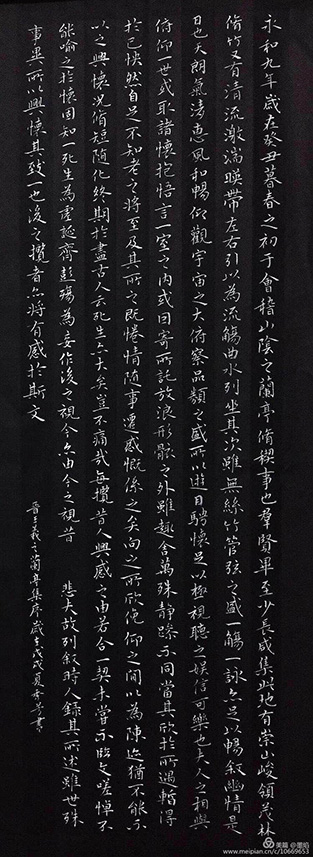 永和九年歲在癸丑暮春之初于會稽山陰之蘭亭脩禊事也群賢畢至少長咸集此地有崇山峻領茂林
脩竹又有清流激湍暎帶左右引以為流觴曲水列坐其次雖無絲竹管弦之盛一觴一詠亦足以暢敘幽情是
日也天朗氣清惠風和暢仰觀宇宙之大俯察品類之盛所以遊目騁懷足以極視聽之娛信可樂也夫人之相與
俯仰一世或取諸懷抱悟言一室之內或因寄所託放浪形骸之外雖趣舍萬殊靜躁不同當其欣於所遇暫得
於己怏然自足不知老之將至及其所之既惓情隨事遷感慨係之矣向之所欣俛仰之間以為陳迹猶不能不
以之興懷況脩短隨化終期於盡古人云死生亦大矣豈不痛哉每攬昔人興感之由若合一契未嘗不臨文嗟悼不
能喻之於懷固知一死生為虛誕齊彭殤為妄作後之視今亦由今之視昔 悲夫故列敘時人錄其所述雖世殊
事異所以興懷其致一也後之攬者亦將有感於斯文
晉王羲之蘭亭集序歲在戊戌夏書
美篇
www.meipian.cn/c/10669653